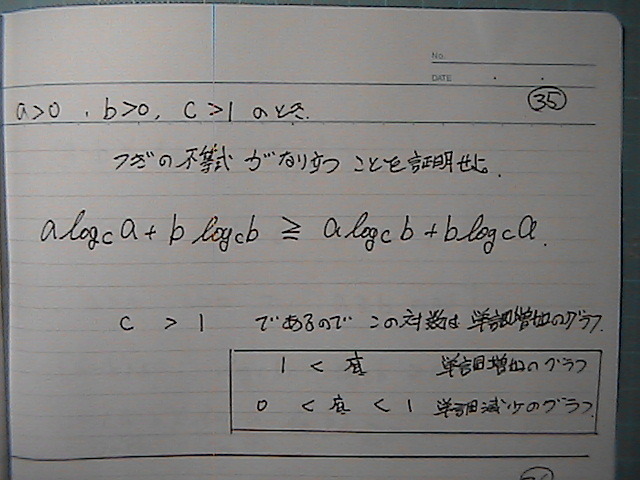 No.
DATE
35
a>0 , b>0, c>1 のとき.
つぎの不等式 がなり立つ ことを証明せよ.
a log_c a + b log_c b ≧ a log_c b + b log_c a.
c > 1 であるので この対数は 単調増加のグラフ.
1 < 底 単調増加のグラフ
0 < 底 < 1 単調減少のグラフ.